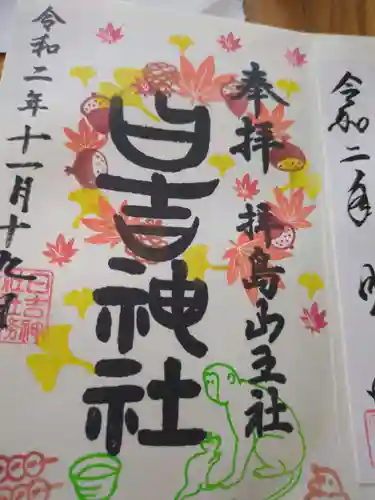 奉拝 拝島山王社
日吉神社
令和二年十一月十九日
日吉神
社社務
令和二年